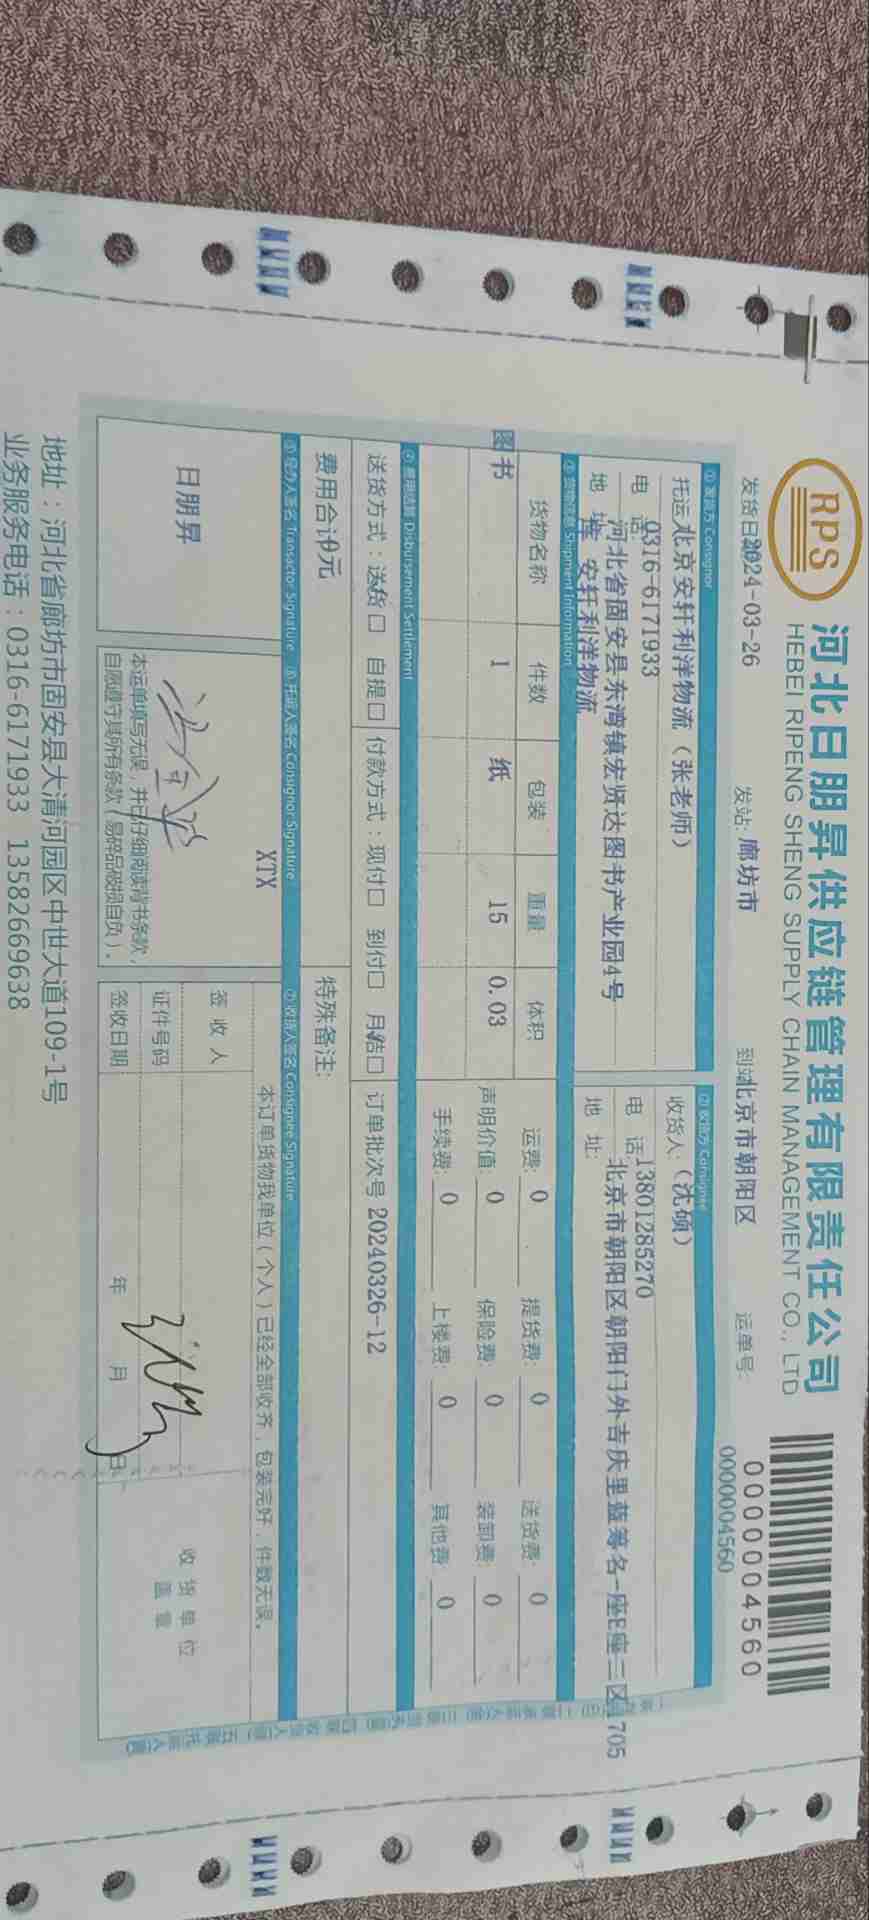 RPS
河北日朋昇供应链管理有限责任公司
HEBEI RIPENG SHENG SUPPLY CHAIN MANAGEMENT CO., LTD
0000004560
0000004560
发货日 2024-03-26 发站: 廊坊市 到站 北京市朝阳区 运单号:
① 发货方 Consignor
托运 北京安轩利洋物流（张老师）
电 话: 0316-6171933
地 址 河北省固安县东湾镇宏贤达图书产业园4号
库 安轩利洋物流
② 收货方 Consignee
收货人: （沈硕）
电 话 13801285270
地 址: 北京市朝阳区朝阳门外吉庆里蓝筹名一座E座二区1705
③ 货物信息 Shipment Information
货物名称 件数 包装 重量 体积
图书 1 纸 15 0.03
运费: 0 提货费: 0 送货费: 0
声明价值: 0 保险费: 0 装卸费: 0
手续费: 0 上楼费: 0 其他费: 0
④ 费用结算 Disbursement Settlement
送货方式：送货□ 自提□ 付款方式：现付□ 到付□ 月结□ 订单批次号 20240326-12
费用合计 0元 特殊备注:
⑤ 经办人签名 Transactor Signature ⑥ 托运人签名 Consignor Signature ⑦ 收货人签名 Consignee Signature
日朋昇
XTX
本运单填写无误，并已仔细阅读背书条款，
自愿遵守其所有条款（易碎品破损自负）。
本订单货物我单位（个人）已经全部收齐，包装完好，件数无误。
签 收 人
证件号码
签收日期 年 月 日
收 货 单 位
盖 章
地址：河北省廊坊市固安县大清河园区中世大道109-1号
业务服务电话：0316-6171933 13582669638